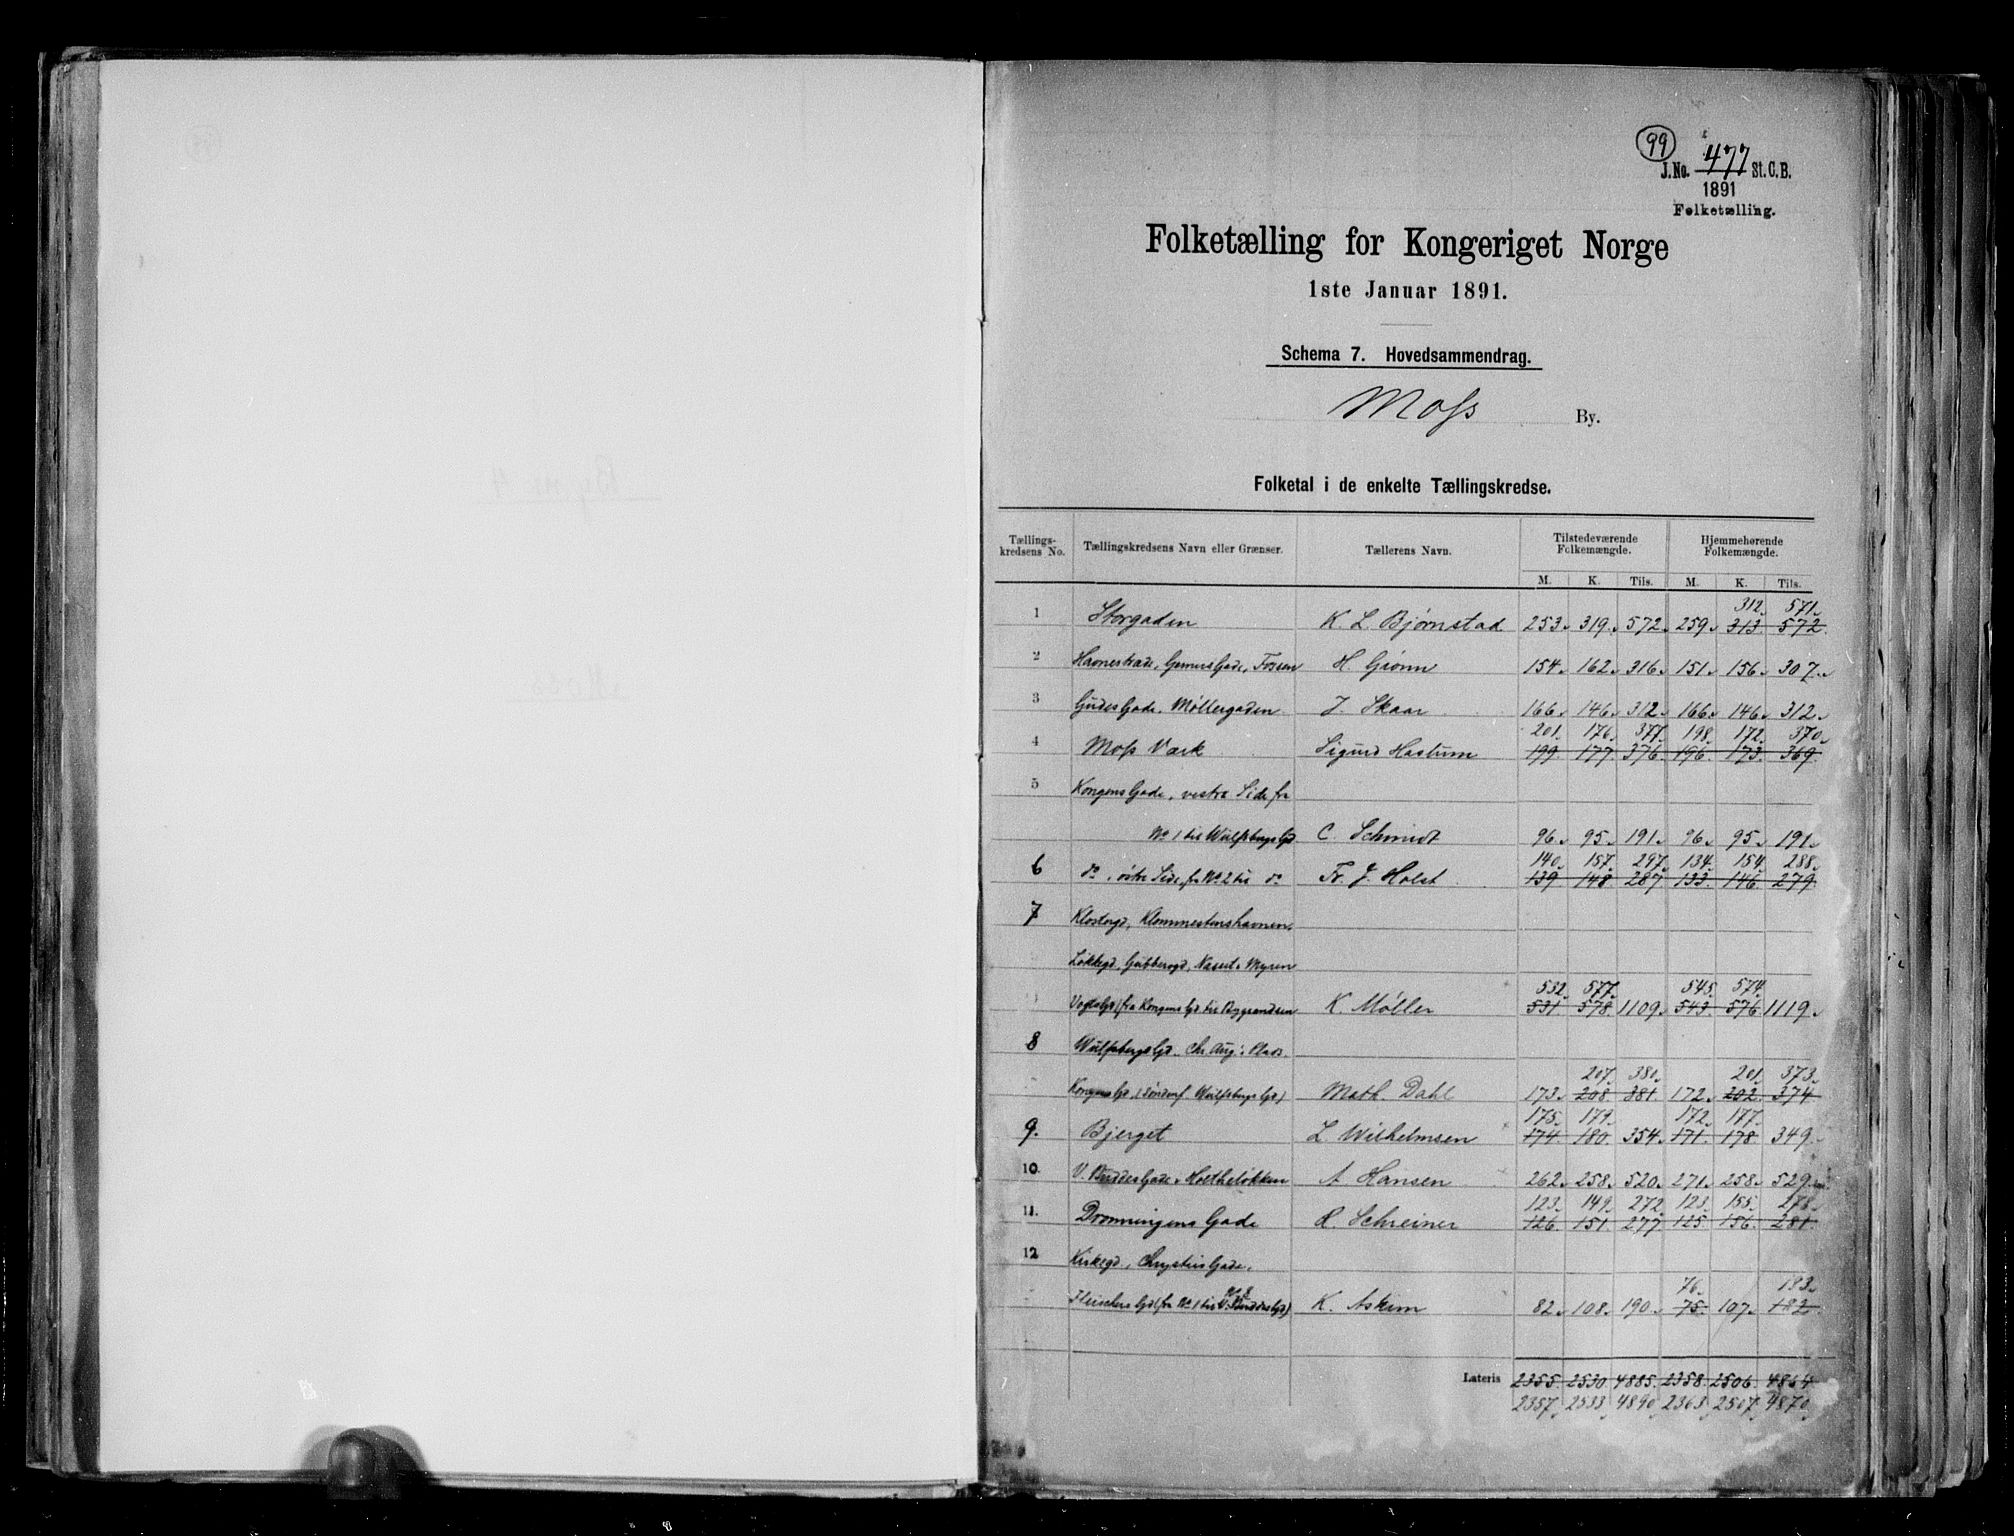 99
J.No. 477 St.C.B.
1891
Folketælling.
Folketælling for Kongeriget Norge
1ste Januar 1891.
Schema 7. Hovedsammendrag.
Moss By.
Folketal i de enkelte Tællingskredse.
Tællingskredsens No. Tællingskredsens Navn eller Grænser. Tællerens Navn. Tilstedeværende Folkemængde. Hjemmehørende Folkemængde.
M. K. Tils. M. K. Tils.
312. 571.
1 Storgaden K. L. Bjørnstad 253. 319. 572. 259. 313. 572.
2 Havnestrade, Gerners Gade, Fossen H. Grønn 154. 162. 316. 151. 156. 307.
3 Gudes Gade, Møllergaden J. Skaar 166. 146. 312. 166. 146. 312.
201. 176. 377. 198. 172. 370.
4 Moss Værk Sigurd Hastum 199. 177. 376. 196. 173. 369.
5 Kongens Gade, vestre Side fra
No 1 til Wulfsbergs Gd C. Schmidt 96. 95. 191. 96. 95. 191.
140. 157. 297. 134. 154. 288.
6 do, østre Side, fra No 2 til do Fr. J. Holst 139 148 287 133. 146. 279.
7 Klostergd, Klommestenshavnen,
Løkkegd, Gubbeogd, Naset, Myren
532. 577. 545. 574.
Vogts Gd (fra Kongens Gd til Bygrændsen K. Møller 531 578. 1109. 543. 576 1119.
8 Wulfsbergs Gd. Chr. Aug.s Plads.
207. 380. 201. 373.
Kongens Gd, (søndenf. Wulfsbergs Gd) Math. Dahl 173. 208. 381. 172. 202. 374
175. 179. 172. 177.
9. Bjerget L. Wilhelmsen 174 180. 354. 171. 178. 349.
10. V. Buddes Gade, Holtheløkken A. Hansen 262. 258. 520. 271. 258. 529.
123. 149. 272. 123. 155. 278.
11. Dronningens Gade R. Schreiner 126. 151. 277. 125. 156. 281.
12 Kirkegd, Chrysties Gade,
76. 183.
Fleischers Gd (fra No 1 til V. Buddes Gd) K. Askim 82. 108. 190. 75. 107. 182.
Lateris 2355. 2530. 4885. 2358. 2506. 4864
2357. 2533. 4890. 2363. 2507. 4870.